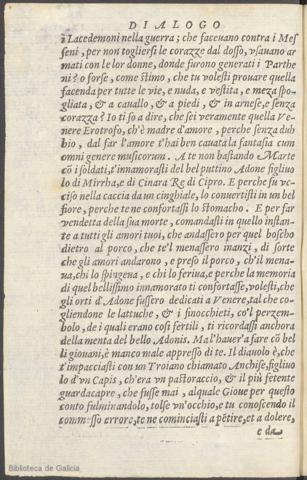 DIALOGO
i Lacedemoni nella guerra; che faceuano contra i Mes
seni, per non togliersi le corazze dal dosso, vsauano ar
mati con le lor donne, donde furono generati i Parthe
ni? o forse, come stimo, che tu volesti prouare quella
facenda per tutte le vie, e nuda, e vestita, e meza spo-
gliata, & a cauallo, & a piedi, & in arnese, e senza
corazza? Io ti so a dire, che sei veramente quella Ve
nere Erotrofo, ch'è madre d'amore, perche senza dub
bio, dal far l'amore t'hai ben cauata la fantasia cum
omni genere musicorum. A te non bastando Marte
cō i soldati, t'innamorasti del bel puttino Adone figliuo
lo di Mirrha, e di Cinara Re di Cipro. E perche fu vc-
ciso nella caccia da un cinghiale, lo conuertisti in un bel
fiore, perche te ne confortassi lo stomacho. E per far
vendetta della sua morte, comandasti in quello instan-
te a tutti gli amori tuoi, che andassero per quel boscho
dietro al porco, che te'l menassero inanzi, di sorte
che gli amori andarono, e preso il porco, ch'il mena-
ua, chi lo spingeua, e chi lo feriua, e perche la memoria
di quel bellissimo innamorato ti confortasse, volesti, che
gli orti d'Adone fussero dedicati a Venere, tal che co-
gliendone le lattuche, & i finocchieti, co'l perzem-
bolo, de i quali erano così fertili, ti ricordassi anchora
della menta del bello Adonis. Ma l'hauer'a fare cō bel
li giouani, è manco male appresso di te. Il diauolo è, che
t'impacciasti con un Troiano chiamato Anchise, figliuo
lo d'vn Capis, ch'era vn pastoraccio, & il più fetente
guardacapre, che fusse mai, al quale Gioue per questo
conto fulminandolo, tolse vn'occhio, e tu conoscendo il
commesso errore, te ne cominciasti a pētire, et a dolere,
Biblioteca de Galicia